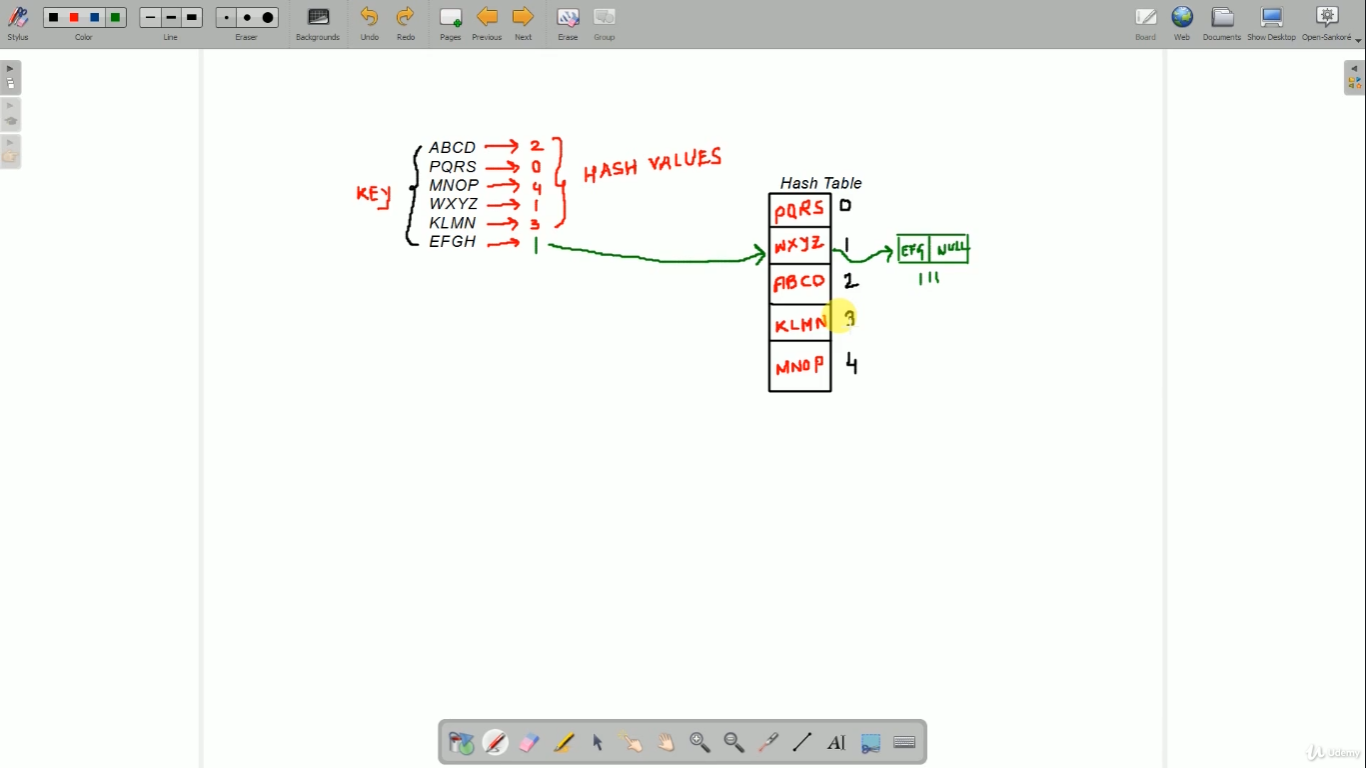 Stylus Color Line Eraser Backgrounds Undo Redo Pages Previous Next Erase Group Board Web Documents Show Desktop Open-Sankoré
ABCD 2
PQRS 0
MNOP 4
WXYZ 1
KLMN 3
EFGH 1
KEY
HASH VALUES
Hash Table
PQRS 0
WXYZ 1
EFG NULL
ABCD 2
KLMN 3
MNOP 4
AI
Udemy